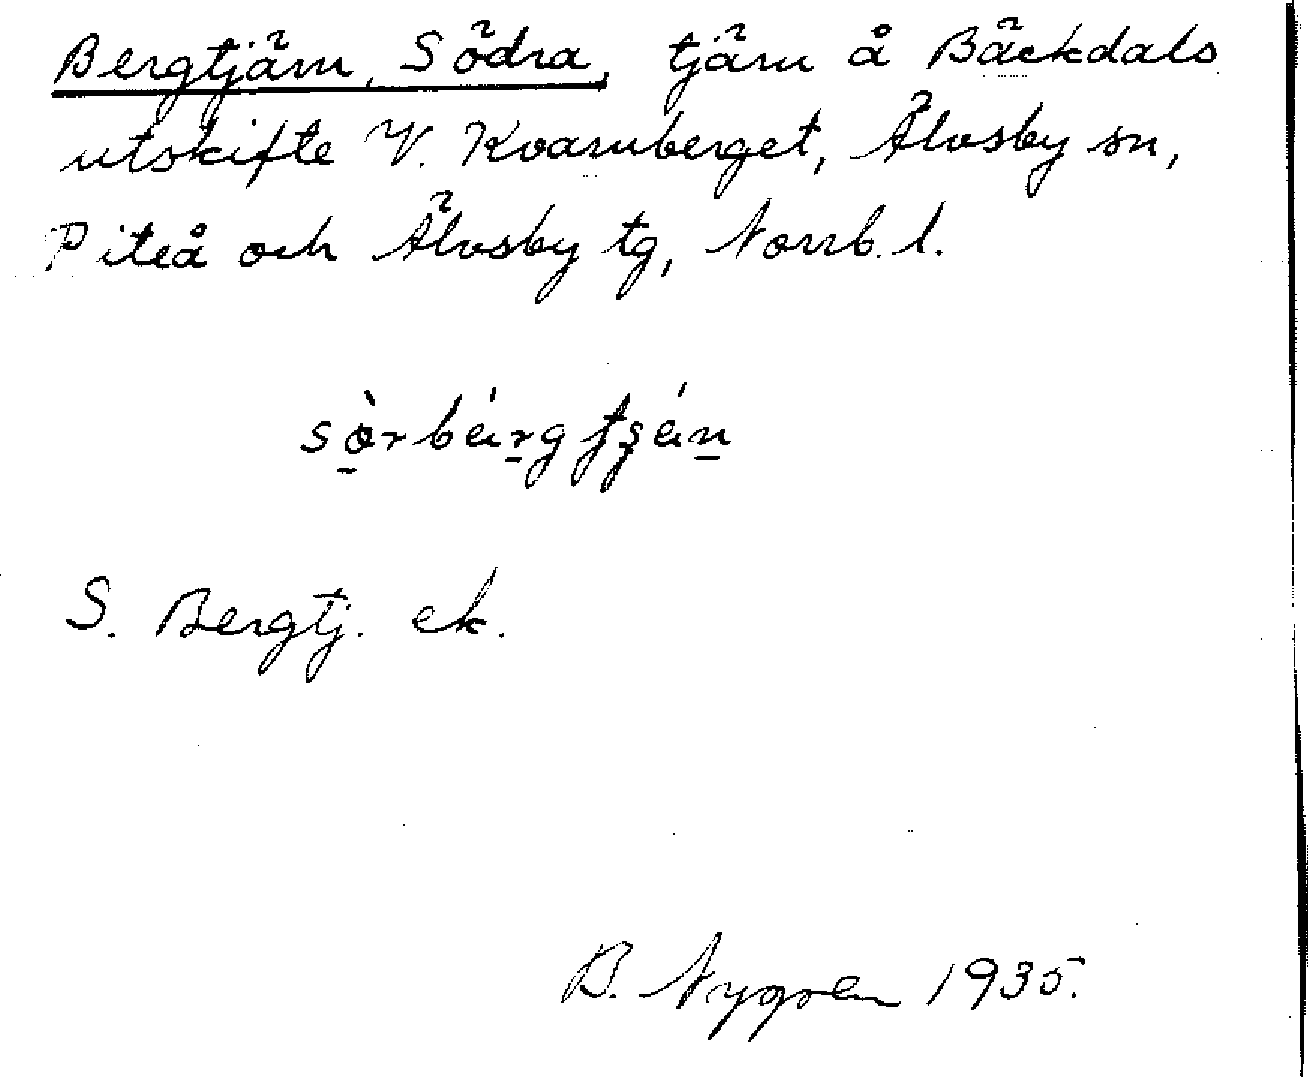 Bergtjärn, Södra, tjärn å Bäckdals
utskifte V. Kvarnberget, Älvsby sn,
Piteå och Älvsby tg, Norrb. l.
sò̠rbárgtʂán̠
S. Bergtj. ek.
B. Nygren 1935.